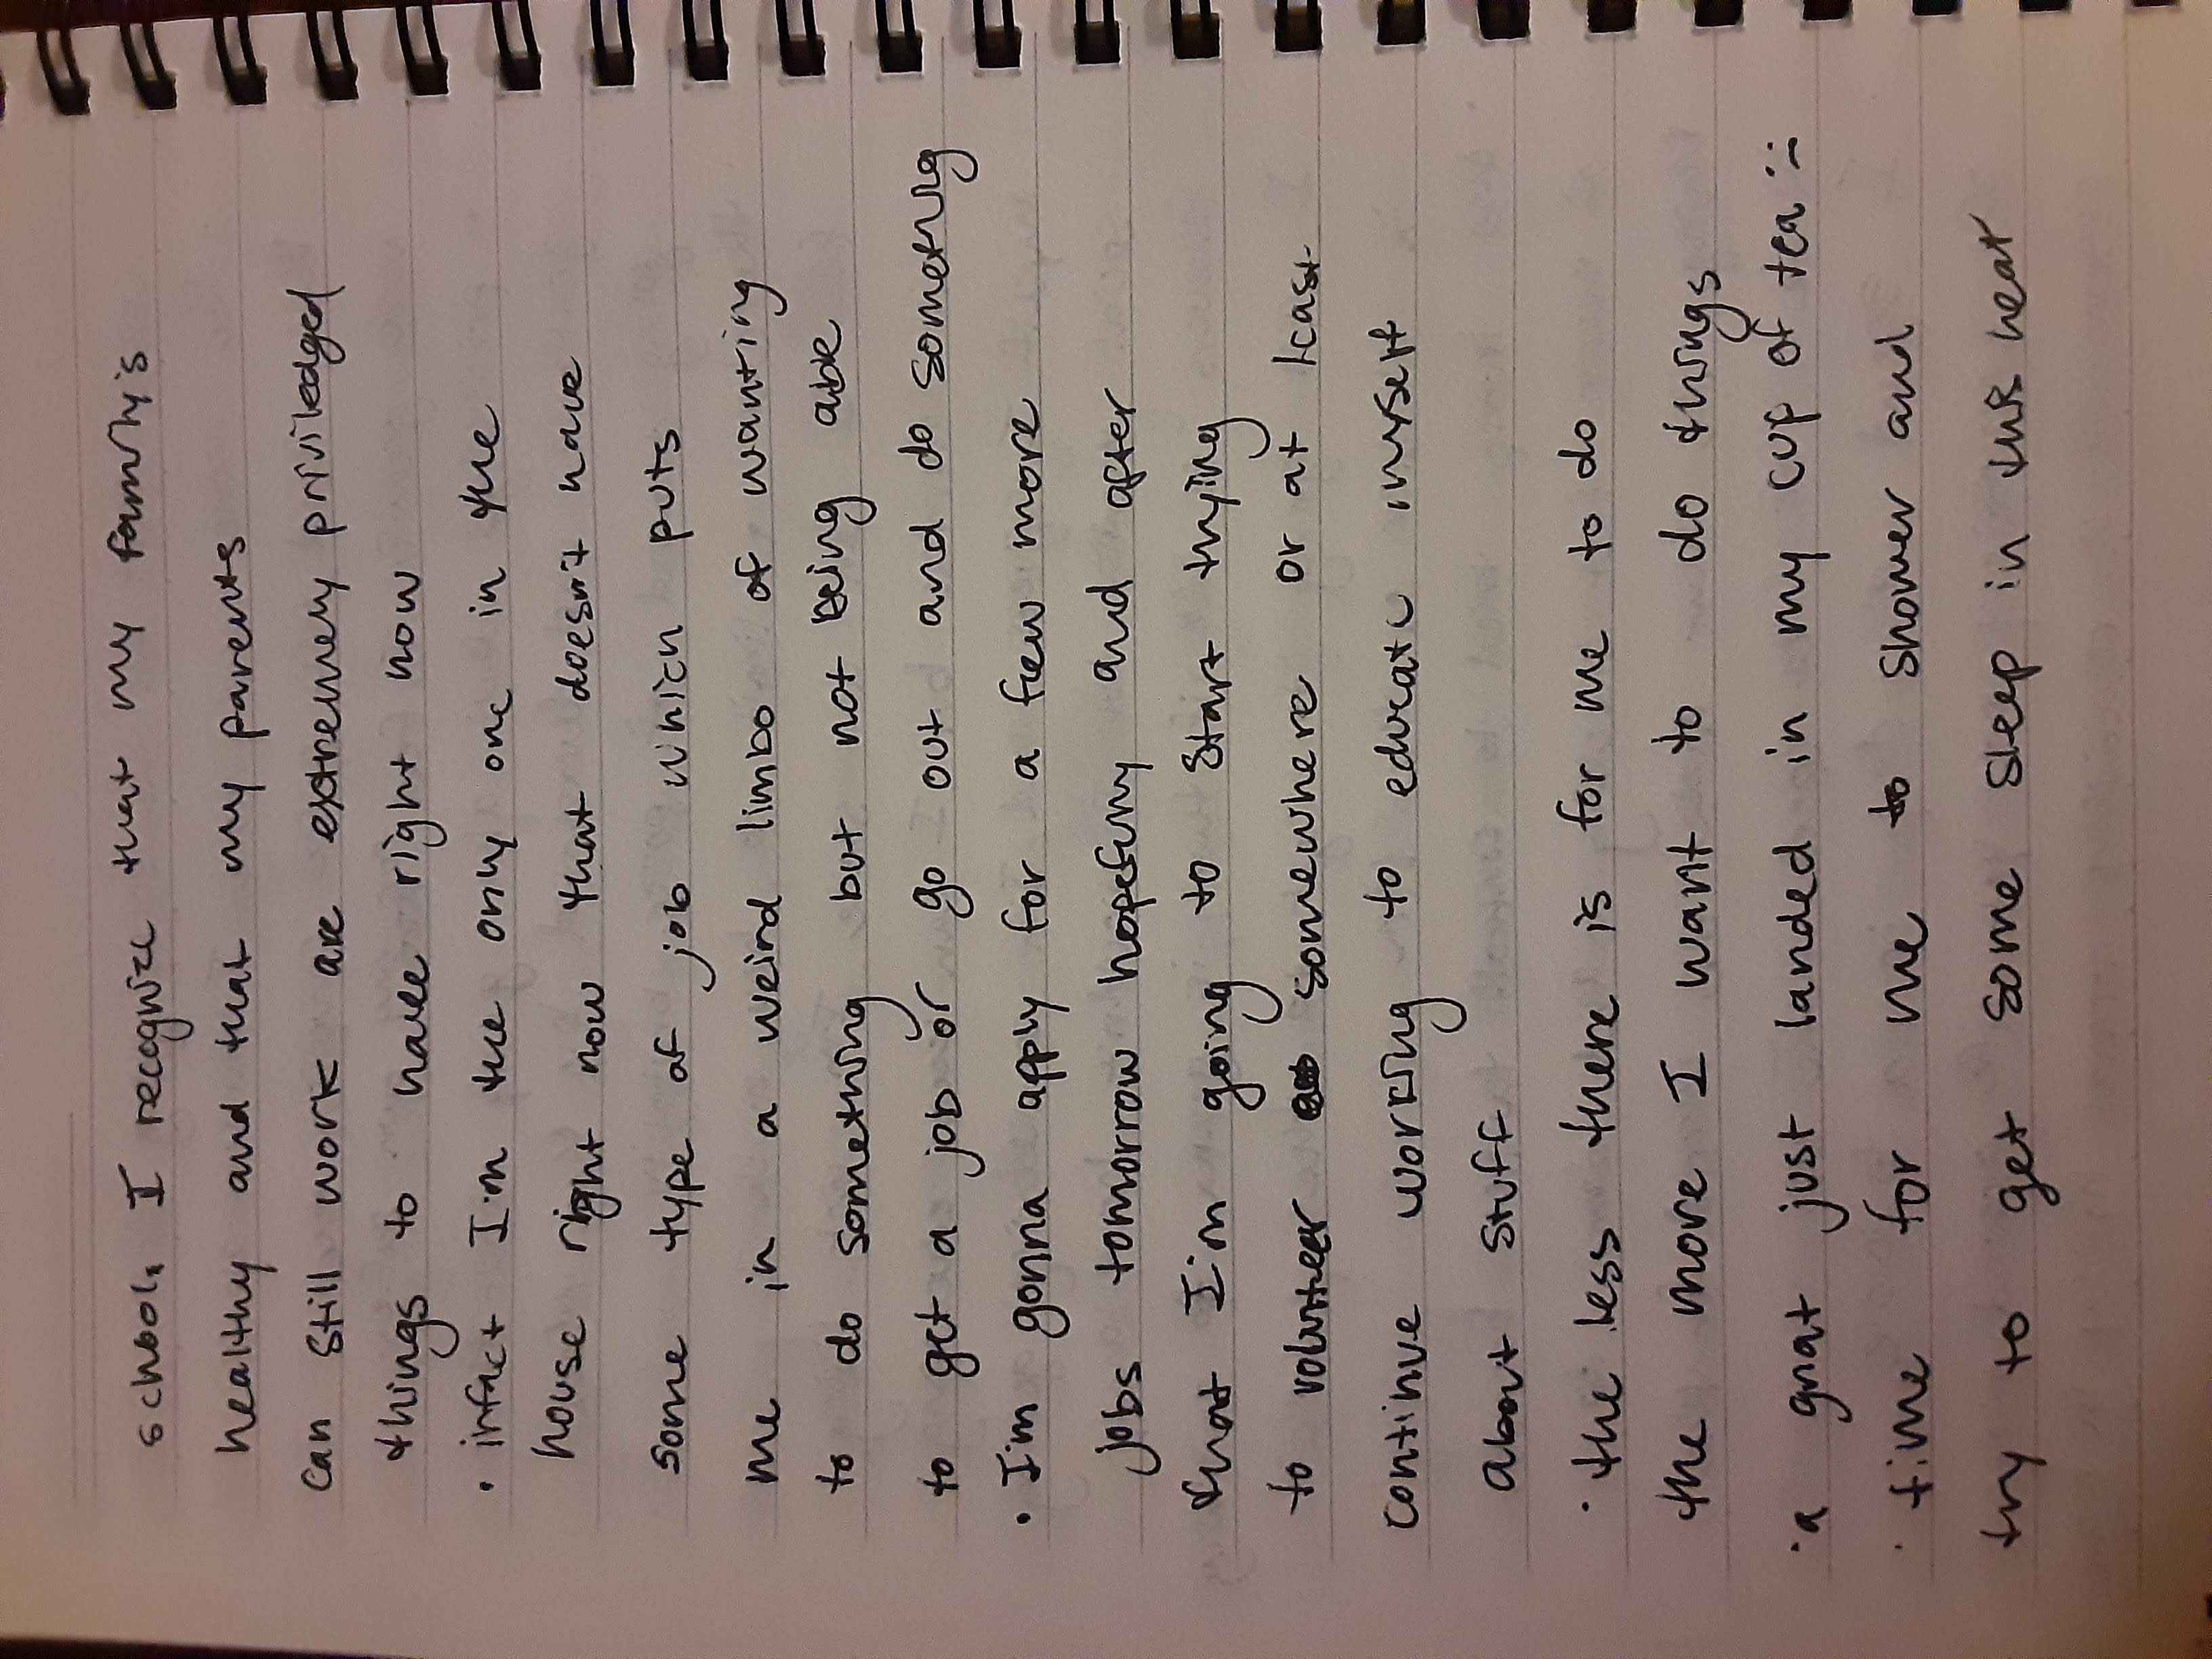 school, I recognize that my family is
healthy and that my parents
can still work are extremely priviledged
things to have right now
• infact I'm the only one in the
house right now that doesn't have
some type of job which puts
me in a weird limbo of wanting
to do something but not being able
to get a job or go out and do something
• I'm gonna apply for a few more
jobs tomorrow hopefully and after
that I'm going to start trying
to volunteer somewhere or at least
continue working to educate myself
about stuff
• the less there is for me to do
the more I want to do things
• a gnat just landed in my cup of tea :-
• time for me to shower and
try to get some sleep in this heat